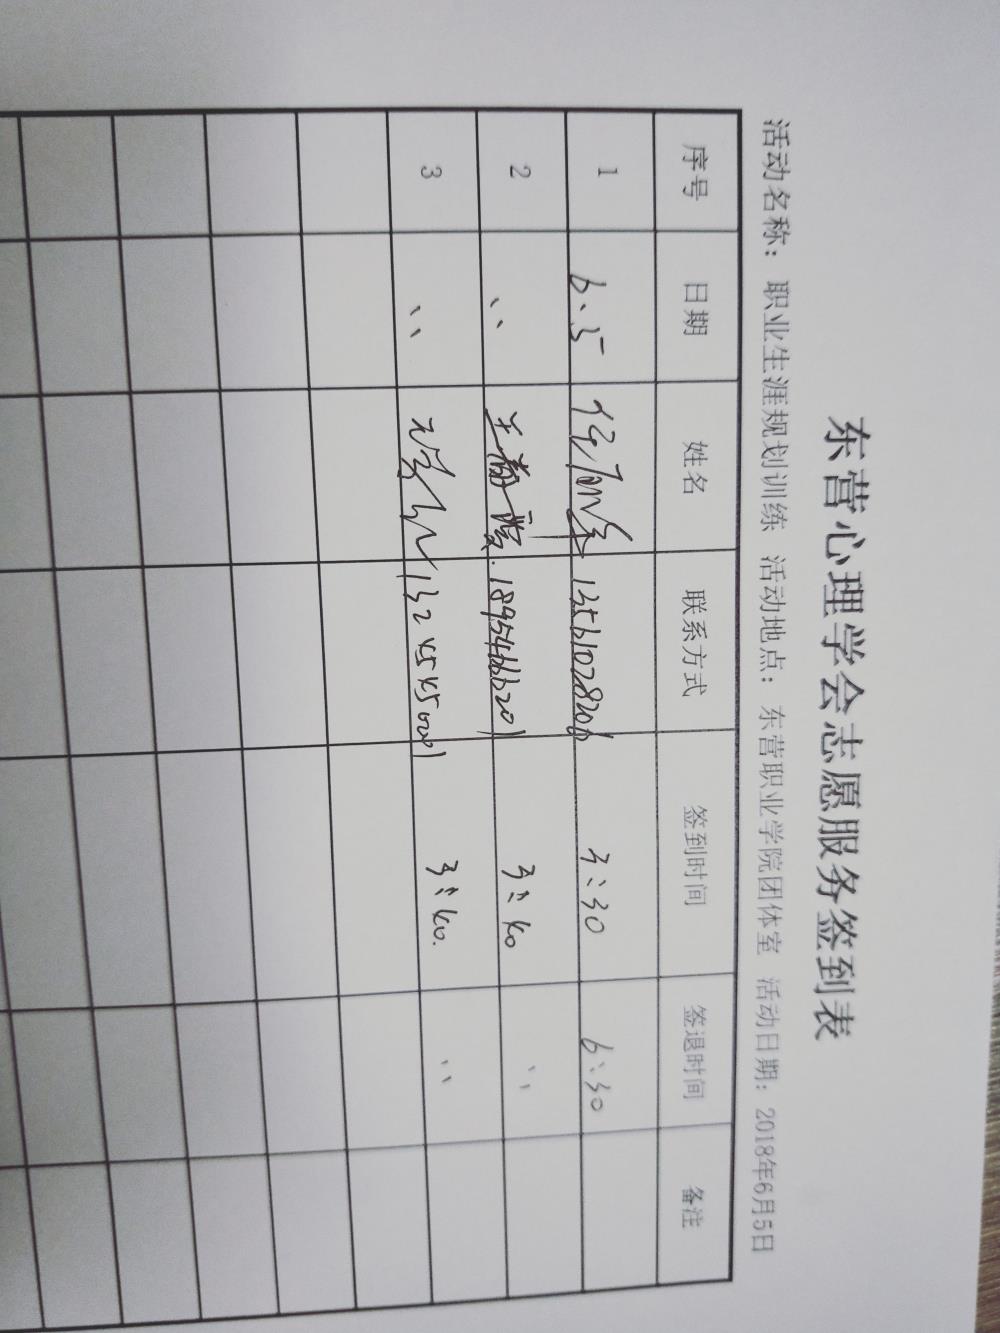 东营心理学会志愿服务签到表
活动名称：职业生涯规划训练 活动地点：东营职业学院团体室 活动日期：2018年6月5日
序号 日期 姓名 联系方式 签到时间 签退时间 备注
1 6.5 13561028206 3:30 6:30
2 〃 18954666201 3:40 〃
3 〃 〃